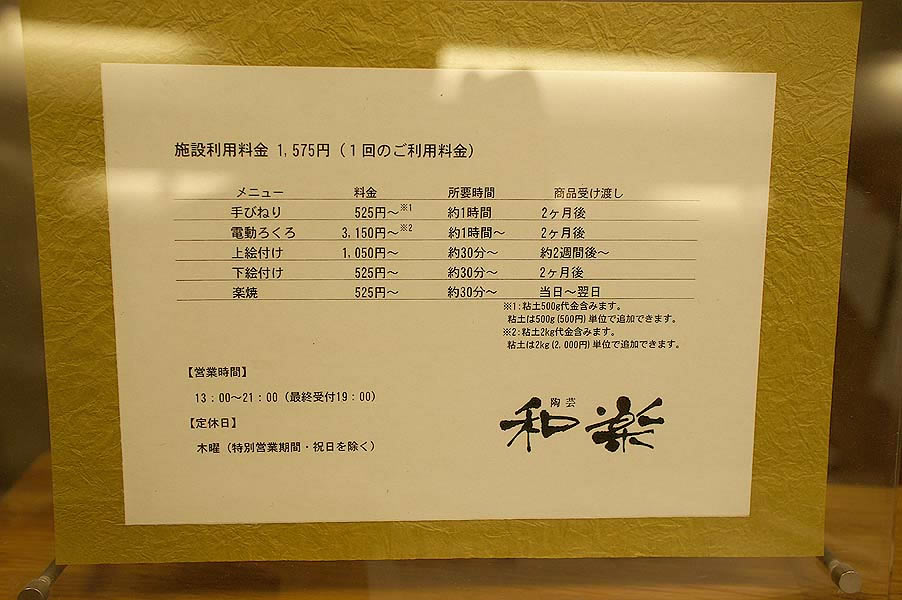 施設利用料金 1,575円（1回のご利用料金）
メニュー 料金 所要時間 商品受け渡し
手びねり 525円～※1 約1時間 2ヶ月後
電動ろくろ 3,150円～※2 約1時間～ 2ヶ月後
上絵付け 1,050円～ 約30分～ 約2週間後～
下絵付け 525円～ 約30分～ 2ヶ月後
楽焼 525円～ 約30分～ 当日～翌日
※1：粘土500g代金含みます。
粘土は500g(500円)単位で追加できます。
※2：粘土2kg代金含みます。
粘土は2kg(2,000円)単位で追加できます。
【営業時間】
13：00～21：00（最終受付19：00）
【定休日】
木曜（特別営業期間・祝日を除く）
陶芸
和楽